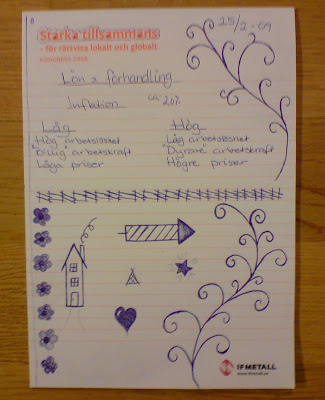 8
25/2-09
Starka tillsammans
- för rättvisa lokalt och globalt
KONGRESS 2008
Löneförhandling
Inflation ca: 2,0%
Låg Hög
Hög arbetslöshet Låg arbetslöshet
"Billig" arbetskraft "Dyrare" arbetskraft
Låga priser Högre priser
IFMETALL
www.ifmetall.se